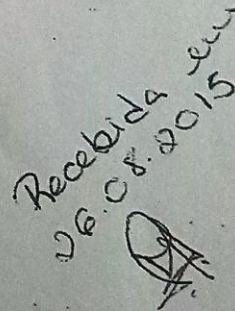 Recebida em
26.08.2015